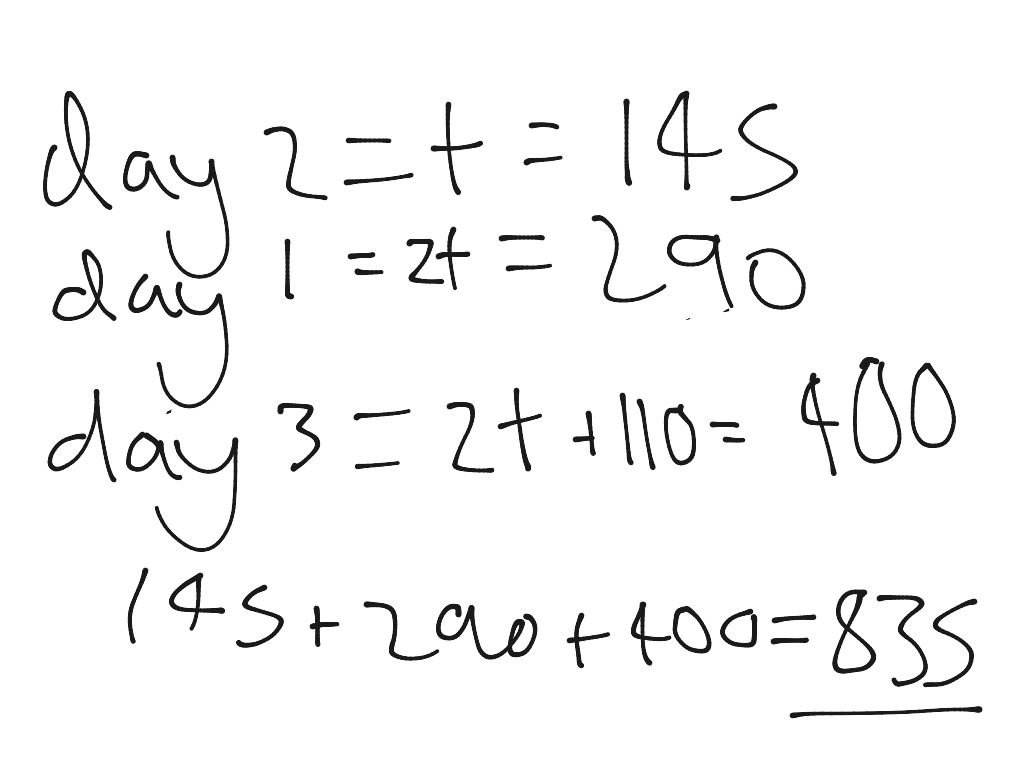 day 2 = t = 145
day 1 = 2t = 290
day 3 = 2t + 110 = 400
145 + 290 + 400 = 835